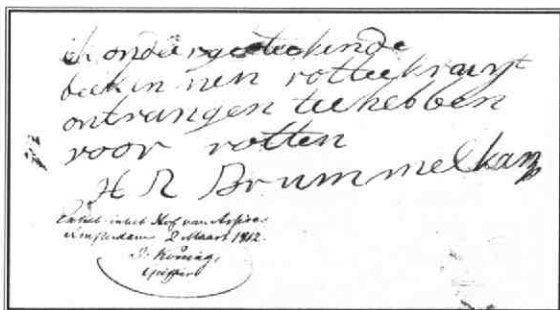 ik ondergeteekende
beekin nen rottekruyt
ontrangen te hebben
voor rotten
H R Brummelkamp
in het Hof van Assises
Amsterdam 2 Maart 1812.
J. Koning,
Griffier